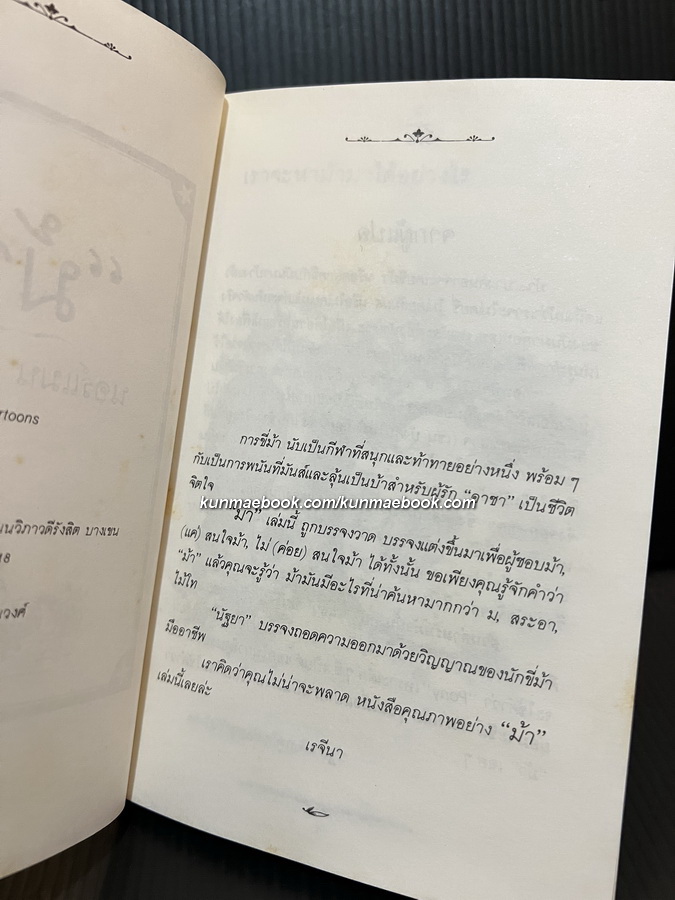 rtoons
นวิภาวดีรังสิต บางเขน
18
วงศ์
การขี่ม้า นับเป็นกีฬาที่สนุกและท้าทายอย่างหนึ่ง พร้อม ๆ
กับเป็นการพนันที่มันส์และลุ้นเป็นบ้าสำหรับผู้รัก “อาชา” เป็นชีวิต
จิตใจ
kunmaebook.com/kunmaebook.com
“ม้า” เล่มนี้ ถูกบรรจงวาด บรรจงแต่งขึ้นมาเพื่อผู้ชอบม้า,
(แค่) สนใจม้า, ไม่ (ค่อย) สนใจม้า ได้ทั้งนั้น ขอเพียงคุณรู้จักคำว่า
“ม้า” แล้วคุณจะรู้ว่า ม้ามันมีอะไรที่น่าค้นหามากกว่า ม, สระอา,
ไม้โท
“นัฐยา” บรรจงถอดความออกมาด้วยวิญญาณของนักขี่ม้า
มืออาชีพ
เราคิดว่าคุณไม่น่าจะพลาด หนังสือคุณภาพอย่าง “ม้า”
เล่มนี้เลยล่ะ
เรจีนา